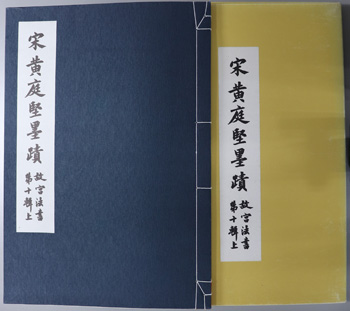 宋黄庭堅墨蹟
故宮法書
第十輯上
宋黄庭堅墨蹟
故宮法書
第十輯上